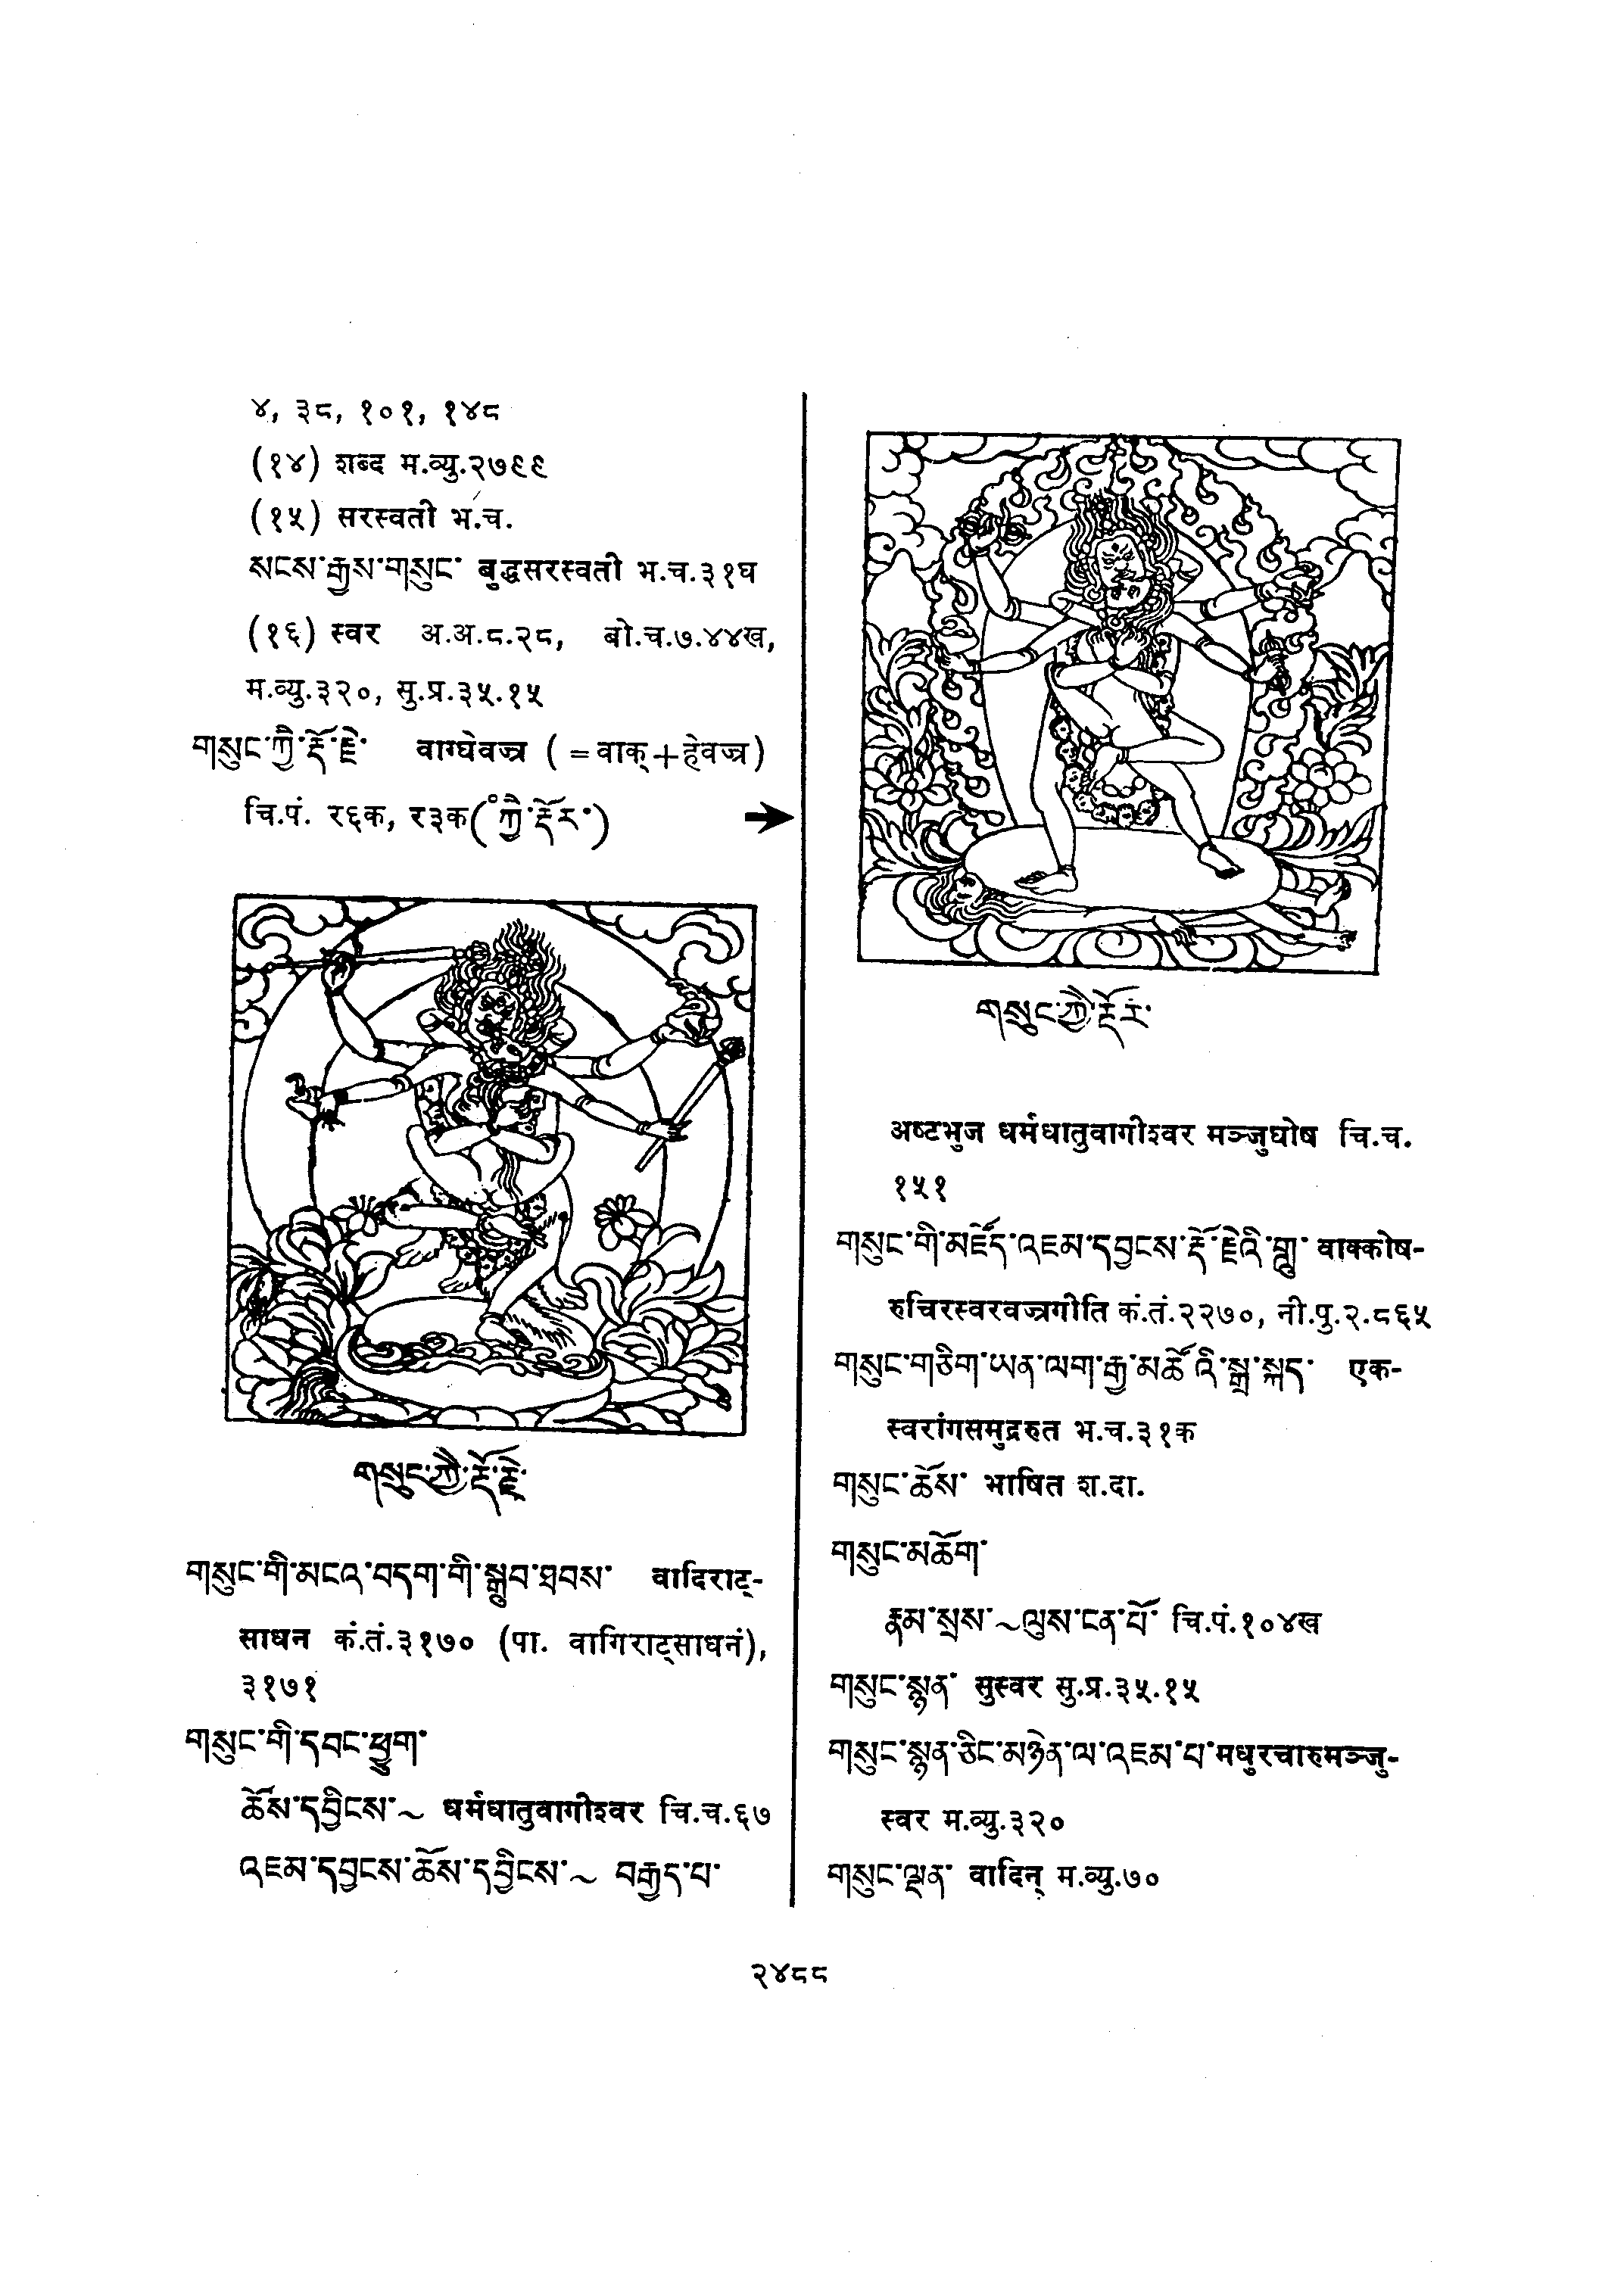 ४, ३८, १०१, १४८
(१४) शब्द म.व्यु.२७९९
(१५) सरस्वती भ.च.
སངས་རྒྱས་གསུང་ बुद्धसरस्वती भ.च.३१घ
(१६) स्वर अ.अ.८.२८, बो.च.७.४४ख,
म.व्यु.३२०, सु.प्र.३५.१५
གསུང་ཀྱི་རྡོ་རྗེ་ वाग्घेवज्र (=वाक्+हेवज्र)
चि.पं. र६क, र३क(°ཀྱི་རྡོར་)
གསུང་ཀྱེ་རྡོ་རྗེ་
གསུང་གི་མངའ་བདག་གི་སྒྲུབ་ཐབས་ वादिराट्-
साधन कं.तं.३१७० (पा. वागिराट्साधनं),
३१७१
གསུང་གི་དབང་ཕྱུག་
ཆོས་དབྱིངས་~ धर्मधातुवागीश्वर चि.च.६७
འཇམ་དབྱངས་ཆོས་དབྱིངས་~ བརྒྱད་པ་
གསུང་ཀྱེ་རྡོར་
अष्टभुज धर्मधातुवागीश्वर मञ्जुघोष चि.च.
१५१
གསུང་གི་མཛོད་འཇམ་དབྱངས་རྡོ་རྗེའི་གླུ་ वाक्कोष-
रुचिरस्वरवज्रगीति कं.तं.२२७०, नी.पु.२.८६५
གསུང་གཅིག་ཡན་ལག་རྒྱ་མཚོའི་སྒྲ་སྐད་ एक-
स्वरांगसमुद्ररुत भ.च.३१क
གསུང་ཆོས་ भाषित श.दा.
གསུང་མཆོག་
རྣམ་སྲས་~ལུས་ངན་པོ་ चि.पं.१०४ख
གསུང་སྙན་ सुस्वर सु.प्र.३५.१५
གསུང་སྙན་ཅིང་མཉེན་ལ་འཇམ་པ་ मधुरचारुमञ्जु-
स्वर म.व्यु.३२०
གསུང་ལྡན་ वादिन् म.व्यु.७०
२४८८